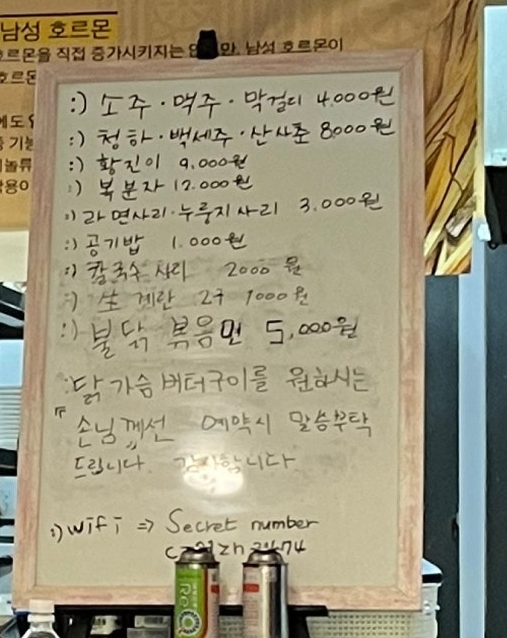 남성 호르몬
호르몬을 직접 증가시키지는 남성 호르몬이
:) 소주·맥주·막걸리 4.000원
:) 청하·백세주·산사춘 8000원
:) 황진이 9.000원
:) 복분자 12.000원
:) 라면사리·누룽지사리 3.000원
:) 공기밥 1.000원
:) 칼국수 사리 2000 원
:) 生 계란 2구 1000원
:) 불닭 볶음면 5,000원
:닭가슴버터구이를 원하시는
손님께선 예약시 말씀부탁
드립니다. 감사합니다
:) wifi => Secret number